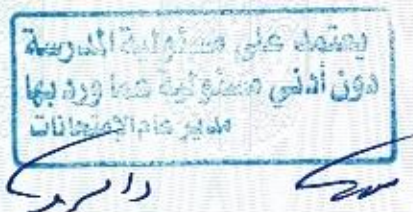 يعتمد على مسئولية المدرسة
دون أدني مسئولية عما ورد بها
مدير عام الإمتحانات